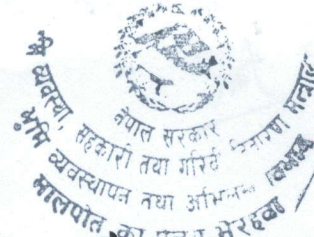 नेपाल सरकार
व्यवस्था, सहकारी तथा गरिबी निवारण मन्त्रालय
भूमि व्यवस्थापन तथा अभिलेख विभाग
मालपोत का भैरहवा